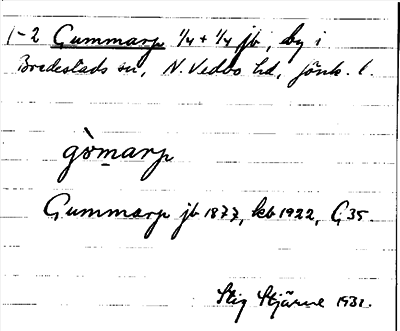 1-2 Gummarp 1/4 + 1/4 jb, by i
Bredestads sn, N. Vedbo hd, Jönk. l.
gòmarp
Gummarp jb 1877, kb 1922, G 35.
Stig Stjärne 1931.